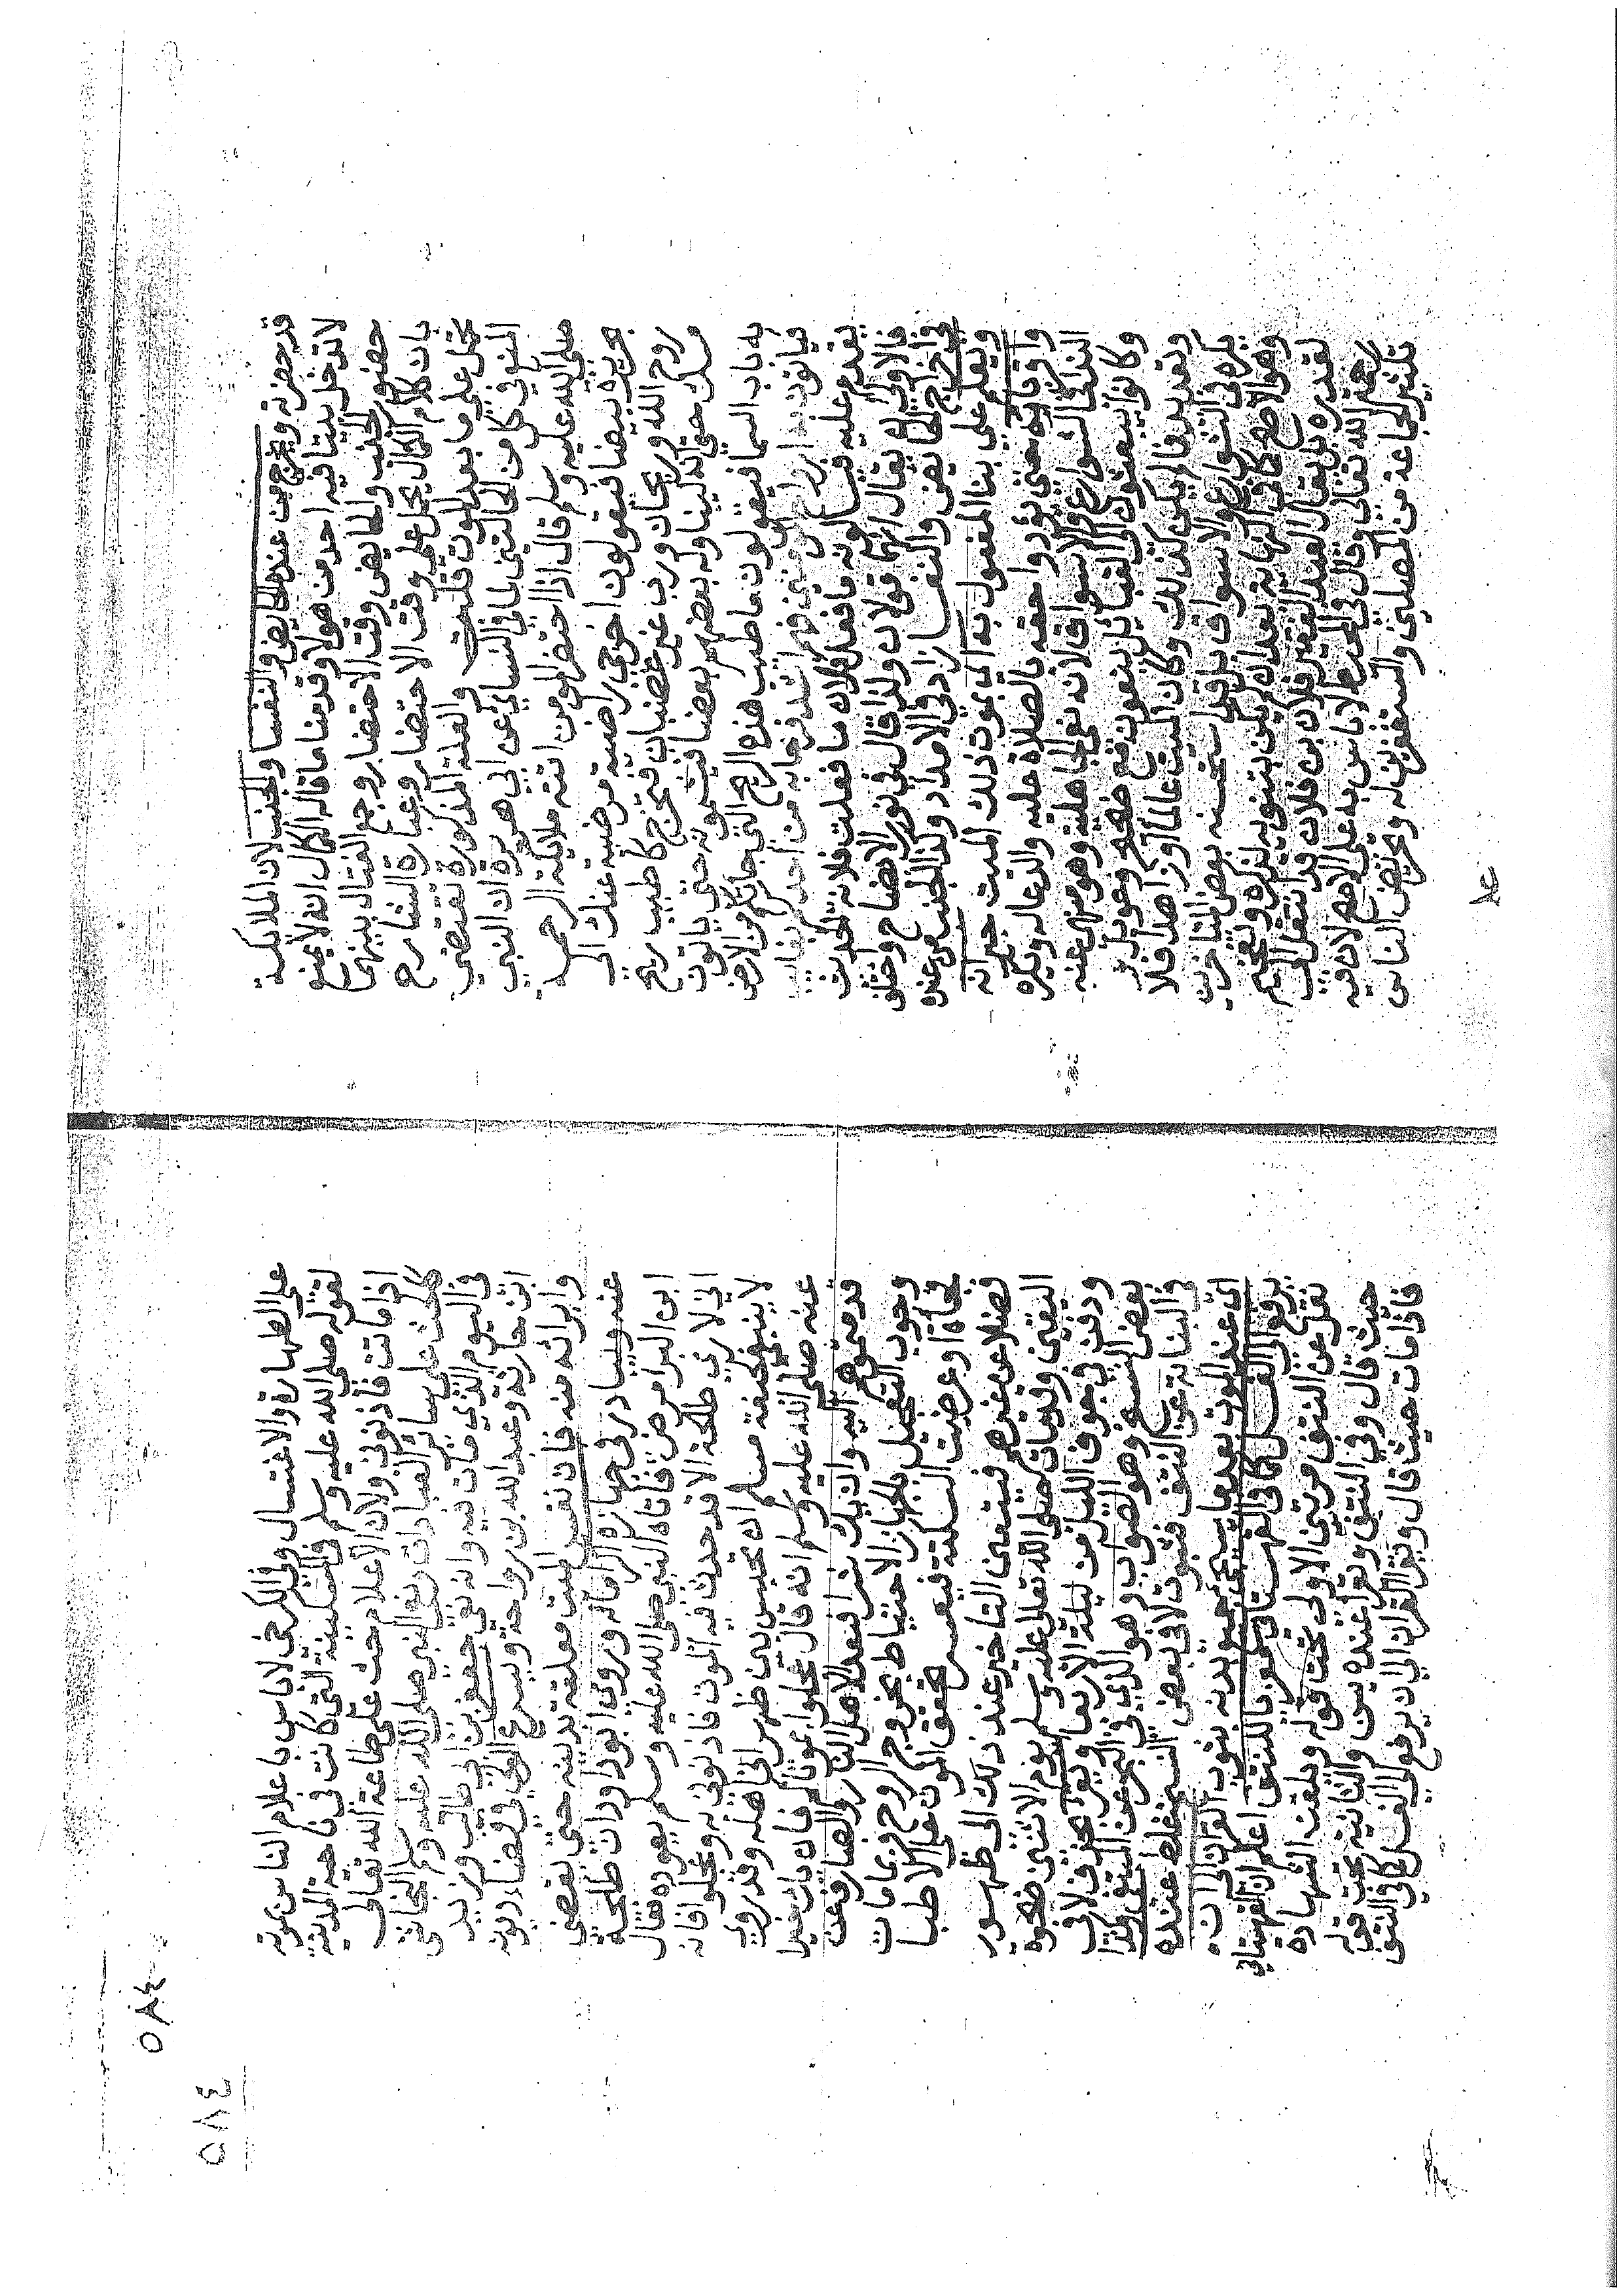 قد حضرته ويخرج من عنده الحايض والنفسا والجنب لان الملائكة
لا تدخل بيتا فيه احد من هولا وقدمنا ما قاله الكمال انه لا يمنع
حضور الجنب والحايض وقت الاحتضار وجمع الفتال بينهما
بان كلام الكمال يحمل على وقت الاحتضار وعبارة الشارح
تحمل على ما بعد الموت قلت والعلة المذكورة تقتضي
المنع في كل من الحالتين لما في النساي عن ابي هريرة ان النبي
صلى الله عليه وسلم قال اذا احتضر المومن اتته ملايكة الرحمة
بحريرة بيضا فيقولون اخرجي راضية مرضية عنك الى
روح الله وريحان ورب غير غضبان فتخرج كاطيب ريح
مسك حتى انه ليناوله بعضهم بعضا فيشمونه حتى ياتون
به باب السما فيقولون ما اطيب هذه الريح التي جاتكم من الارض
فياتون به ارواح المومنين فلهم اشد فرحا به من احدكم بغايبه
يقدم عليه فيسالونه ما فعل فلان ما فعلت فلانة الحديث
فالاولى ان يقال انهما قولان ولذا قال في نور الايضاح واختلف
في اخراج الحايض والنفسا زاد في الامداد وكذا الجنب من عنده
ويعلم على بنا المفعول به اي بموت ذلك الميت جيرانه
واقرباوه حتى يودوا حقه بالصلاة عليه والدعا له ويكره
الندا في الشوارع والاسواق لانه نعي الجاهلية وهو منهي عنه
وكانوا يبعثون الى القبايل ينعون مع ضجيج وعويل
وتعديد فالم يكن كذلك وكان الميت عالما او زاهدا فلا
يكره في الشوارع والاسواق بل قد استحسنه بعض المتاخرين
وهو الاصح كما في النهاية بعد ان يكن بتنويه لذكره وتفخيم
لقدره بل يقال العبد الفقير فلان بن فلان قد انتقل الى
رحمة الله تعالى وقال في المحيط لا باس به على الاصح لان فيه
تكثير الجماعة من المصلين والمستغفرين له وتحريض الناس
على
على الطهارة والاغتسال وفي الكرخي لا باس باعلام الناس بموته
لقوله صلى الله عليه وسلم في المسكينة التي كانت في ناحية المدينة
اذا ماتت فاذنوني ولان الاعلام حث على طاعة الله تعالى
كالحث على ساير العبادات ونعى النبي صلى الله عليه وسلم النجاشي
في اليوم الذي مات فيه وانه نعى جعفر بن ابي طالب وزيد
ابن حارثة وعبد الله بن رواحة ويسرع الولي في قضاء ديونه
وابرائه منه فان نفس الميت معلقة بدينه حتى تقضى
عنه ويبادر في جهازه اكراما له وروى ابو داود ان طلحة
ابن البرا مرض فاتاه النبي صلى الله عليه وسلم يعوده فقال
اني لا ارى طلحة الا قد حدث فيه الموت فاذنوني به وعجلوا فانه
لا ينبغي لجيفة مسلم ان تحبس بين ظهراني اهله وقد روي
عنه صلى الله عليه وسلم انه قال عجلوا موتاكم فان يك خيرا
قدمتموهم اليه وان يك شرا فبعدا لاهل النار والصارف عن
وجوب التعجيل بالجهاز الاحتياط بخروج الروح فربما مات
فجاة او عرضت السكتة فيعسر تحقق الموت على الاطبا
فضلا عن غيرهم فيتعين التاخير عند ذلك الى ظهور
اليقين وقد مات صلى الله تعالى عليه وسلم يوم الاثنين ضحوة
ودفن في جوف الليل من ليلة الاربعا ويقرا بحذف لا في
بعض النسخ وهو الصواب وهو الذي في البحر عن النتف ولذا
في البناية عن النتف فثبوت لا في بعض النسخ غلط عنده
اي عند الموت بعد ما سجي جميع بدنه بثوب القران الى ان
يرفع الى الغسل كما في القهستاني معزوا بالنتف اعلم ان القهستاني
نقل عن النتف مرتين الاولى تحت قوله ويلقن الشهادة
حيث قال وفي النتف ويقرا عنده يس والثانية تحت قوله
فاذا مات حيث قال ويقرا القران الى ان يرفع الى الغسل كما في النتف
٥٨٤
٥٨٤